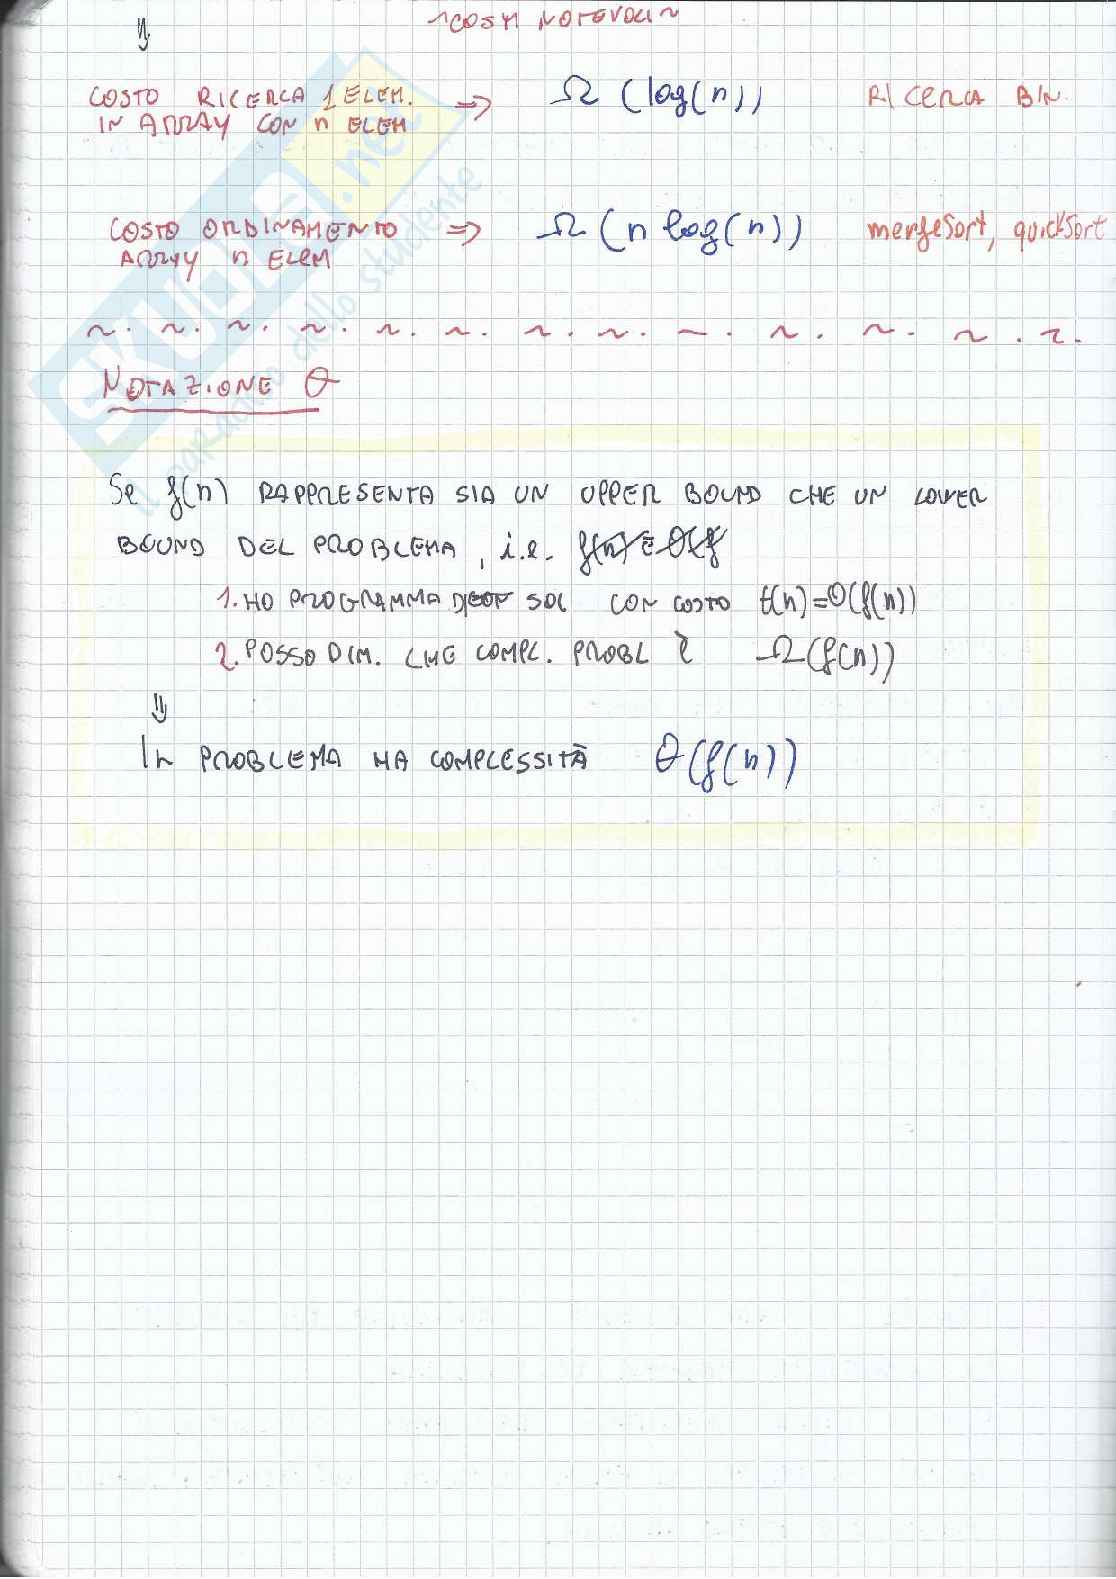 ~COSTI NOTEVOLI~
COSTO RICERCA 1 ELEM. => Ω (log(n)) RICERCA BIN.
IN ARRAY CON n ELEM
COSTO ORDINAMENTO => Ω (n log(n)) mergeSort, quickSort
ARRAY n ELEM
NOTAZIONE Θ
Se f(n) RAPPRESENTA SIA UN UPPER BOUND CHE UN LOWER
BOUND DEL PROBLEMA, i.e.
1. HO PROGRAMMA SOL CON COSTO t(n)=O(f(n))
2. POSSO DIM. CHE COMPL. PROBL È Ω(f(n))
⇓
IL PROBLEMA HA COMPLESSITÀ Θ(f(n))
SKUOLA.net
il paradiso dello studente